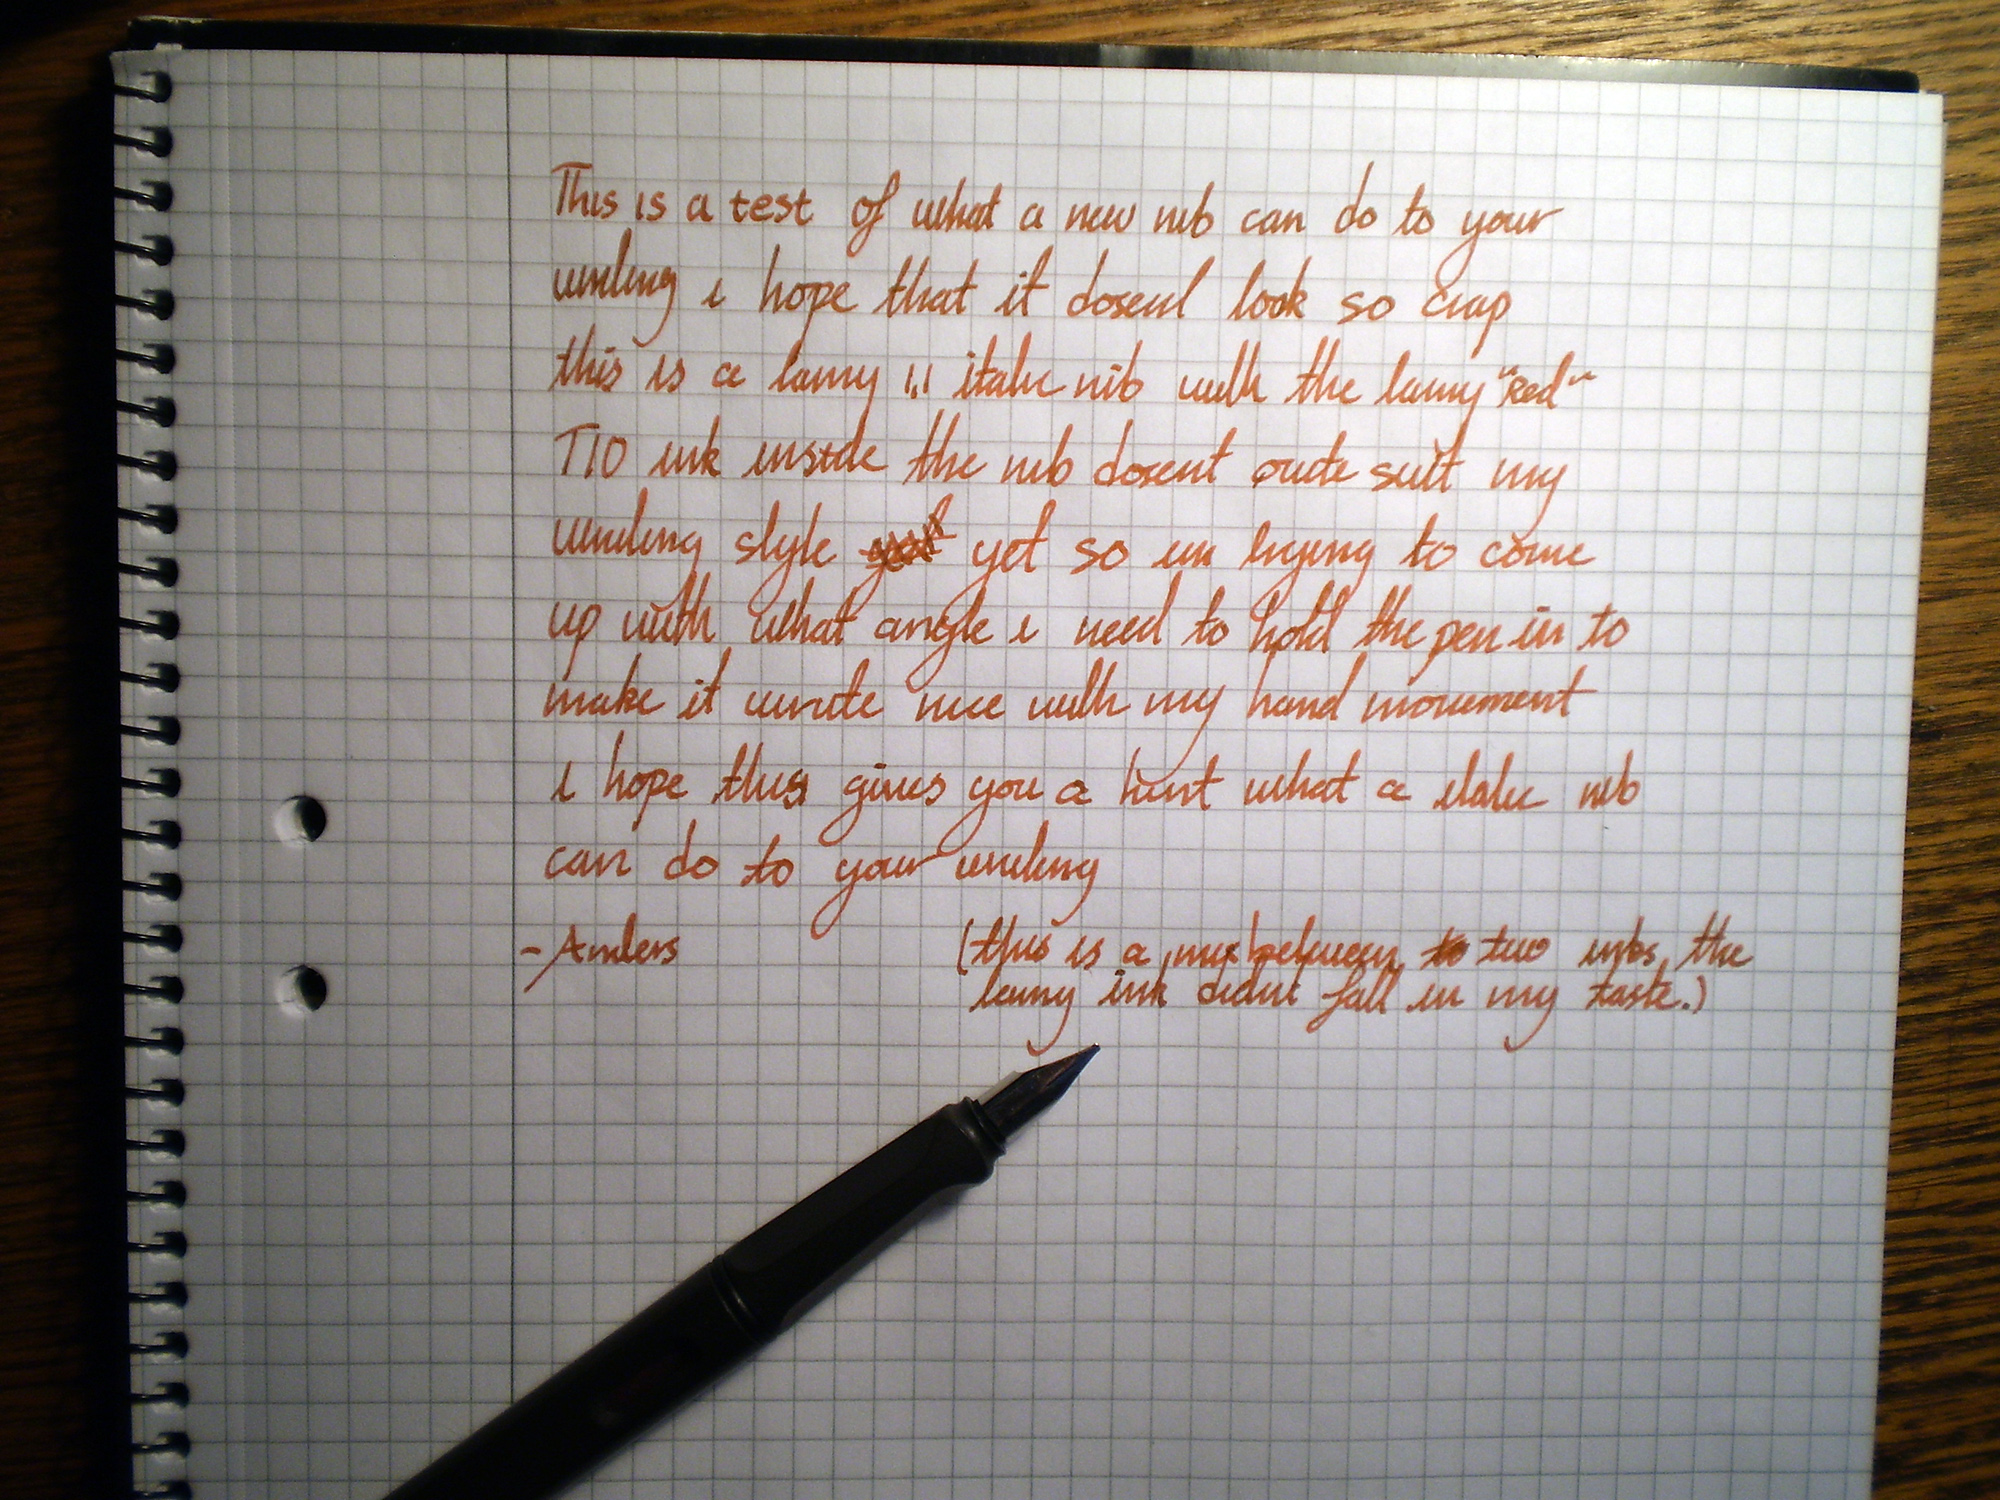 This is a test of what a new nib can do to your
writing i hope that it dosent look so crap
this is a lamy 1.1 italic nib with the lamy "Red"
T10 ink inside the nib dosent quite suit my
writing style yet so im trying to come
up with what angle i need to hold the pen in to
make it write nice with my hand movement
i hope this gives you a hint what a italic nib
can do to your writing
- Anders
(this is a mix between two inks, the
lamy ink didnt fall in my taste.)